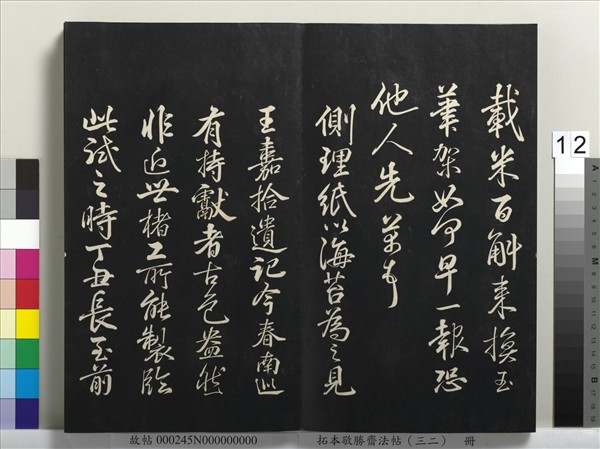 載米百斛來換玉
筆架如何早一報恐
他人先芾書
側理紙以海苔為之見
王嘉拾遺記今春南巡
有持獻者古色盎然
非近世楮工所能製臨
此試之時丁丑長至前
12
故帖 000245N000000000 拓本敬勝齋法帖（三二） 冊